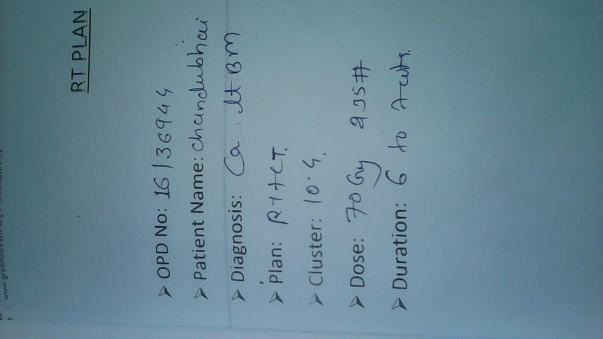 RT PLAN
➤ OPD No: 16/36944
➤ Patient Name: chandubhai
➤ Diagnosis: Ca. Lt BM
➤ Plan: RT+CT.
➤ Cluster: 10.4.
➤ Dose: 70 Gy 35#
➤ Duration: 6 to 7